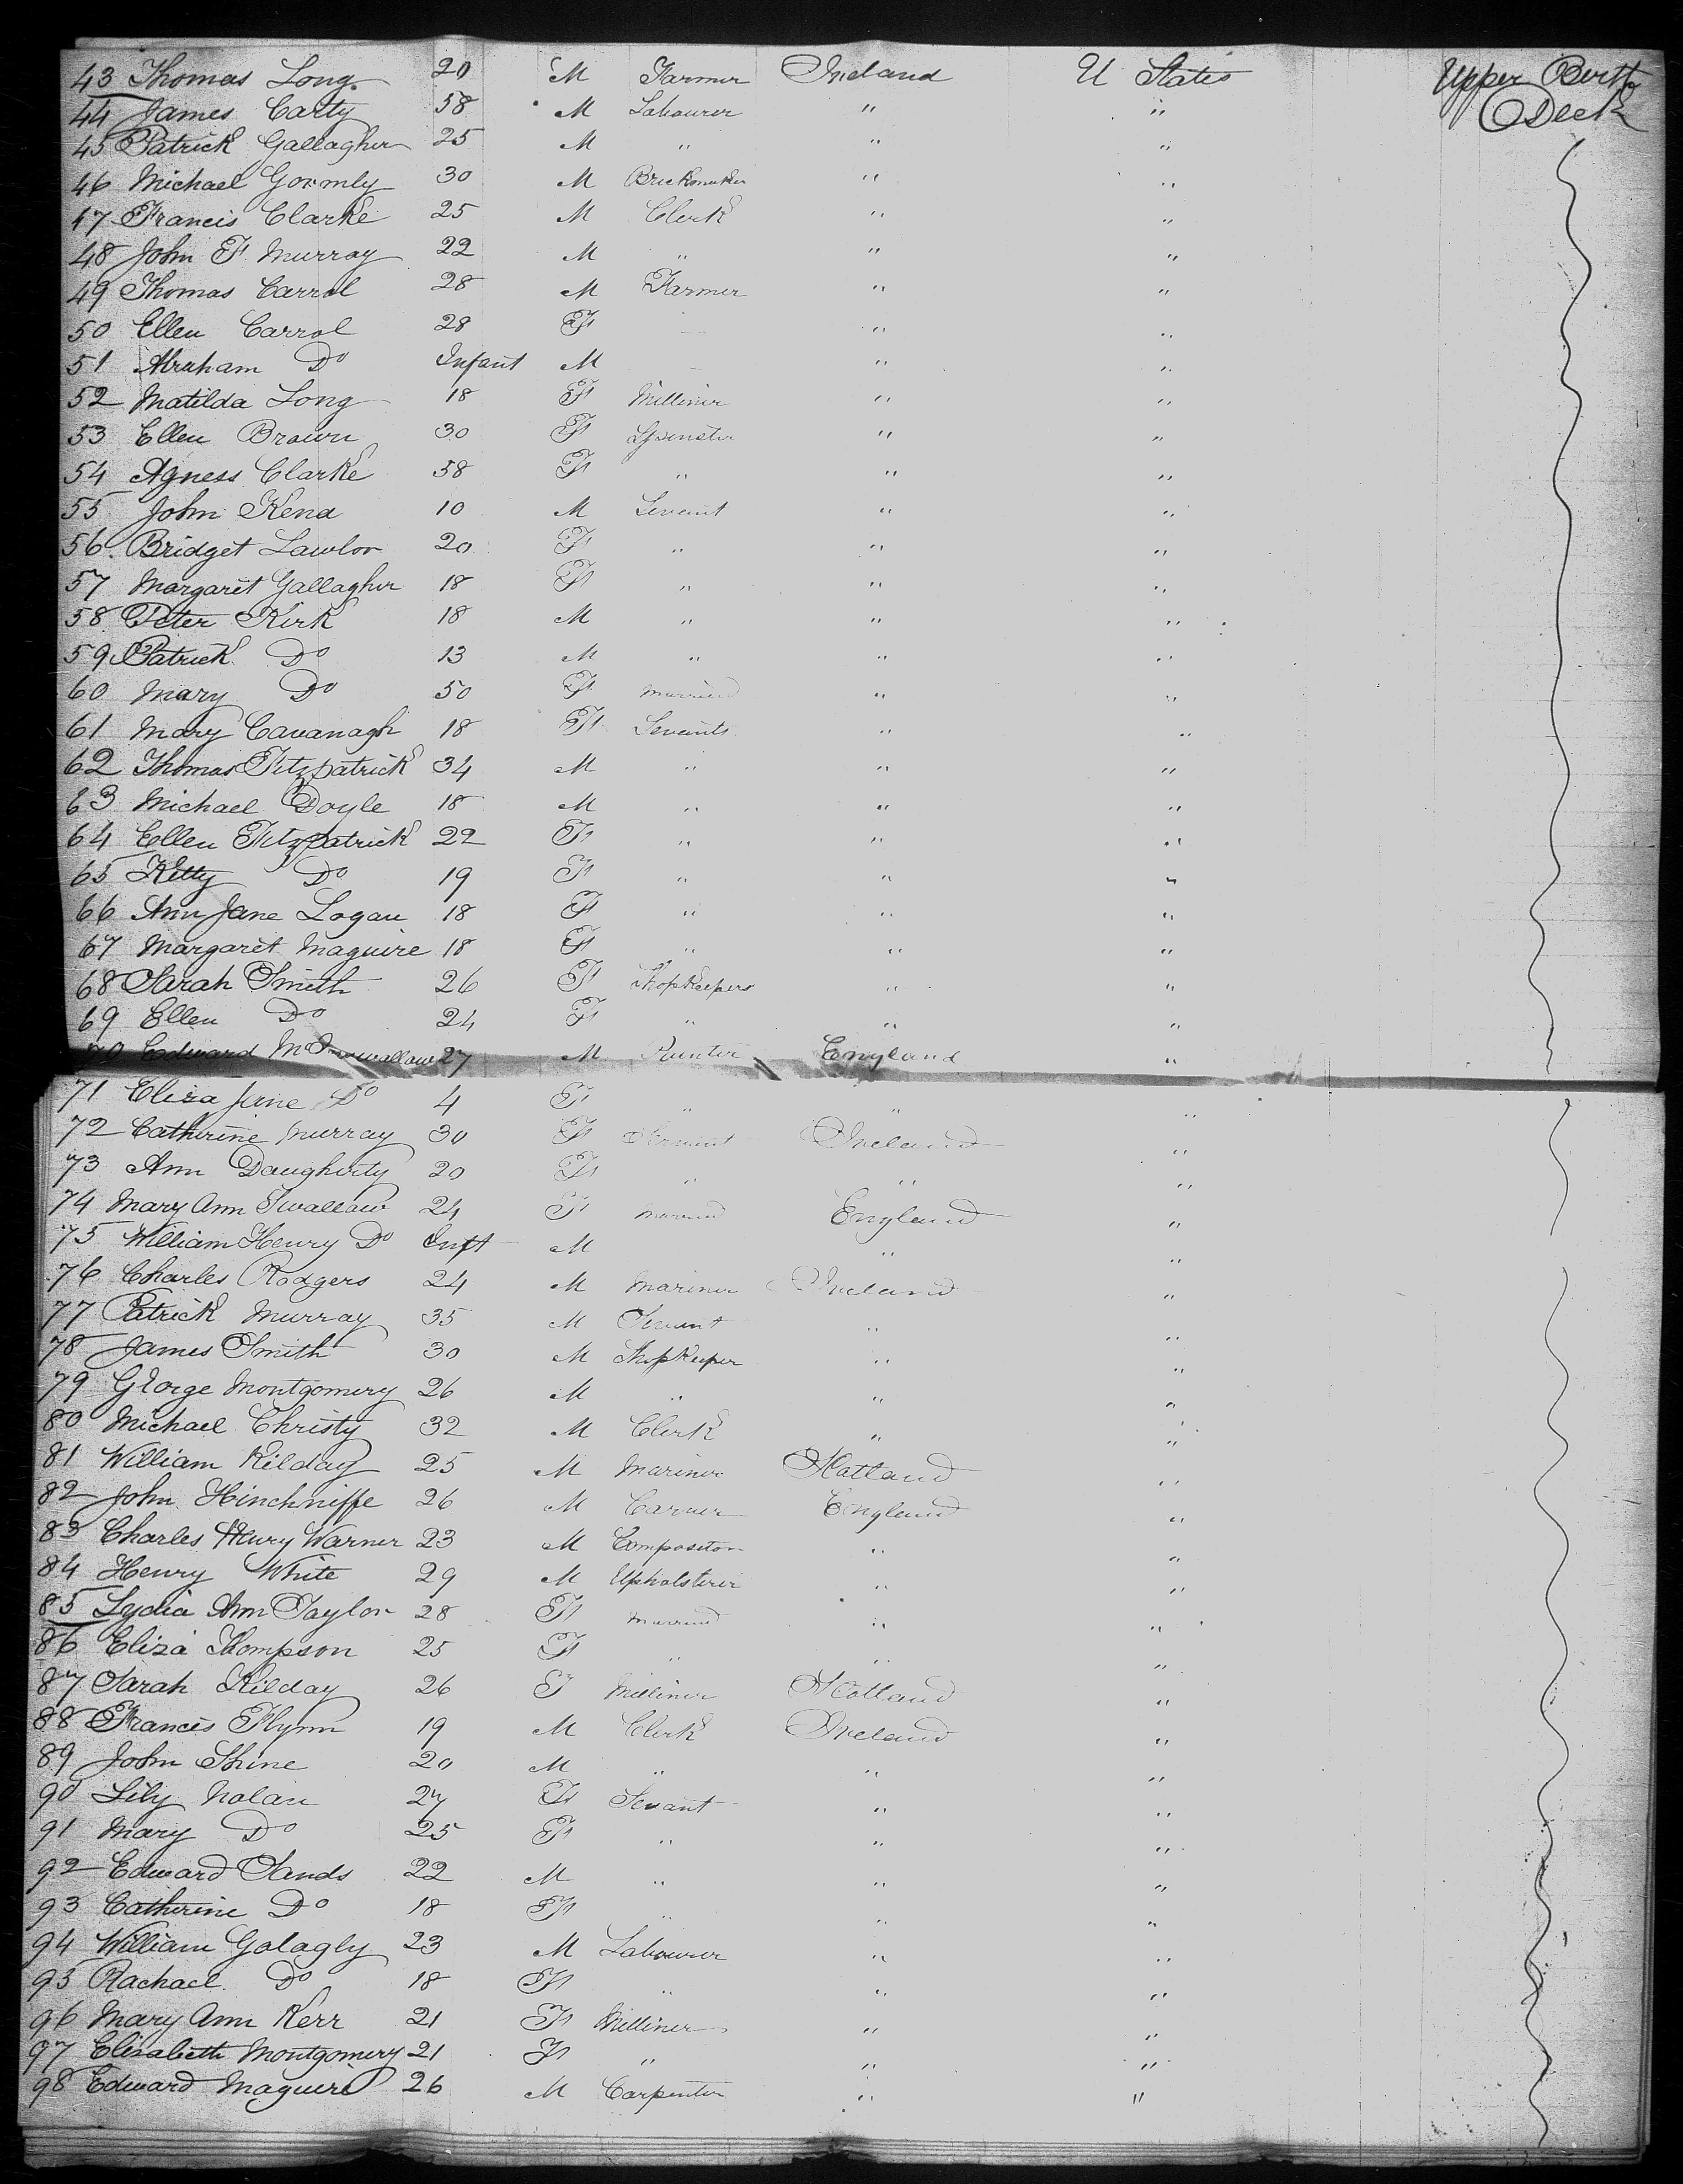 43 Thomas Long 20 M Farmer Ireland U States Upper Berth
44 James Carty 58 M Labourer " " Deck
45 Patrick Gallagher 25 M " " "
46 Michael Gormly 30 M Brickmaker " "
47 Francis Clarke 25 M Clerk " "
48 John F Murray 22 M " " "
49 Thomas Carrol 28 M Farmer " "
50 Ellen Carrol 28 F " "
51 Abraham Do Infant M " "
52 Matilda Long 18 F Milliner " "
53 Ellen Brown 30 F Spinster " "
54 Agness Clarke 58 F " " "
55 John Kena 10 M Sevant " "
56 Bridget Lawlor 20 F " " "
57 Margaret Gallagher 18 F " " "
58 Peter Kirk 18 M " " "
59 Patrick Do 13 M " " "
60 Mary Do 50 F Married " "
61 Mary Cavanagh 18 F Sevants " "
62 Thomas Fitzpatrick 34 M " " "
63 Michael Doyle 18 M " " "
64 Ellen Fitzpatrick 22 F " " "
65 Kitty Do 19 F " " "
66 Ann Jane Logan 18 F " " "
67 Margaret Maguire 18 F " " "
68 Sarah Smith 26 F Shopkeepers " "
69 Ellen Do 24 F " " "
70 Edward 27 M Painter England "
71 Eliza Jane Do 4 F " " "
72 Catherine Murray 30 F Servant Ireland "
73 Ann Daugherty 20 F " " "
74 Mary Ann Swallow 24 F Married England "
75 William Henry Do Inft M " "
76 Charles Rodgers 24 M Mariner Ireland "
77 Patrick Murray 35 M Sevant " "
78 James Smith 30 M Shopkeeper " "
79 George Montgomery 26 M " " "
80 Michael Christy 32 M Clerk " "
81 William Kilday 25 M Mariner Scotland "
82 John Hinchniffe 26 M Carver England "
83 Charles Henry Warner 23 M Compositor " "
84 Henry White 29 M Upholsterer " "
85 Lydia Ann Taylor 28 F Married " "
86 Eliza Thompson 25 F " " "
87 Sarah Kilday 26 F Milliner Scotland "
88 Francis Flynn 19 M Clerk Ireland "
89 John Shine 20 M " " "
90 Lily Nolan 27 F Sevant " "
91 Mary Do 25 F " " "
92 Edward Sands 22 M " " "
93 Catherine Do 18 F " " "
94 William Golagly 23 M Labourer " "
95 Rachael Do 18 F " " "
96 Mary Ann Kerr 21 F Milliner " "
97 Elisabeth Montgomery 21 F " " "
98 Edward Maguire 26 M Carpenter " "